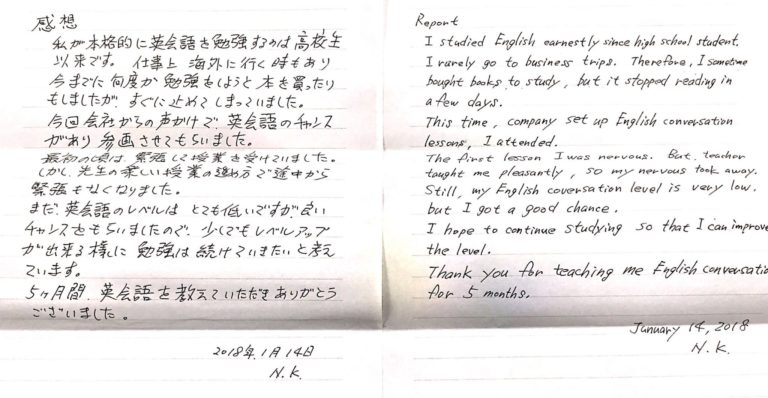 感想
私が本格的に英会話を勉強するのは高校生
以来です。仕事上海外に行く時もあり
今までに何度か勉強をしようと本を買ったり
もしましたが、すぐに止めてしまっていました。
今回会社からの声かけで、英会話のチャンス
があり参画させてもらいました。
最初の頃は、緊張して授業を受けていました。
しかし、先生の楽しい授業の進め方で途中から
緊張もなくなりました。
まだ、英会話のレベルは とても低いですが、良い
チャンスをもらいましたので、少しでもレベルアップ
が出来る様に勉強は続けていきたいと考え
ています。
5ヶ月間、英会話を教えていただきありがとう
ございました。
2018年1月14日
N.K.
Report
I studied English earnestly since high school student.
I rarely go to business trips. Therefore, I sometime
bought books to study, but it stopped reading in
a few days.
This time, company set up English conversation
lessons, I attended.
The first lesson I was nervous. But, teacher
taught me pleasantly, so my nervous took away.
Still, my English coversation level is very low.
but I got a good chance.
I hope to continue studying so that I can improve
the level.
Thank you for teaching me English conversatio
for 5 months.
January 14, 2018
N.K.